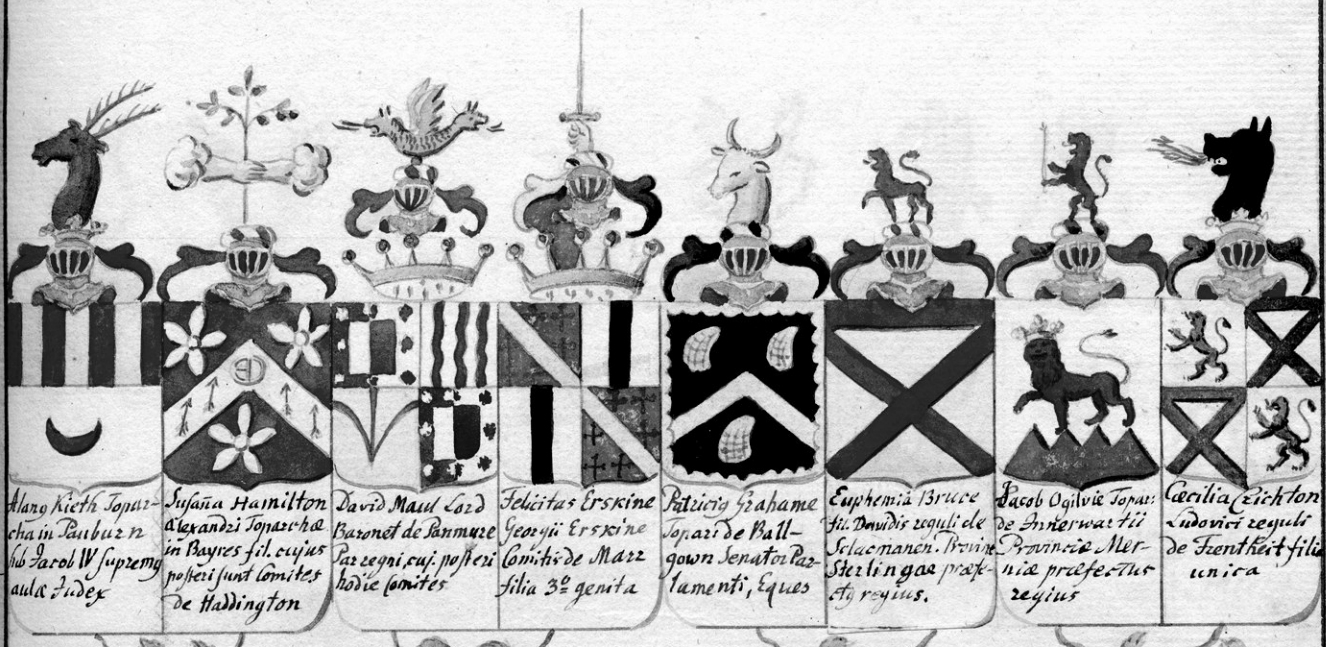 Alany Kieth Topar-
cha in Pauburn
sub Jacob IV Supremy
aulæ Judex
Susaña Hamilton
Alexandri Toparchæ
in Bayres fil. cujus
posteri sunt Comites
De Haddington
David Maul Lord
Baronet de Panmure
Par regni, cuj. posteri
hodie Comites
Felicitas Erskine
Georgii Erskine
Comitis de Marr
filia 3º genita
Patriciꝯ Grahame
Topar: de Ball-
gown Senator Par-
lamenti, Eques
Euphemia Bruce
fil. Davidis reguli de
Sclacmanen. Provin
Sterlingæ præfe-
ctꝯ regius.
Jacob Ogilvie Topar:
de Innerwartii
Provinciæ Mer-
niæ præfectus
regius
Cæcilia Crichton
Ludovici reguli
de Frentheit filia
unica